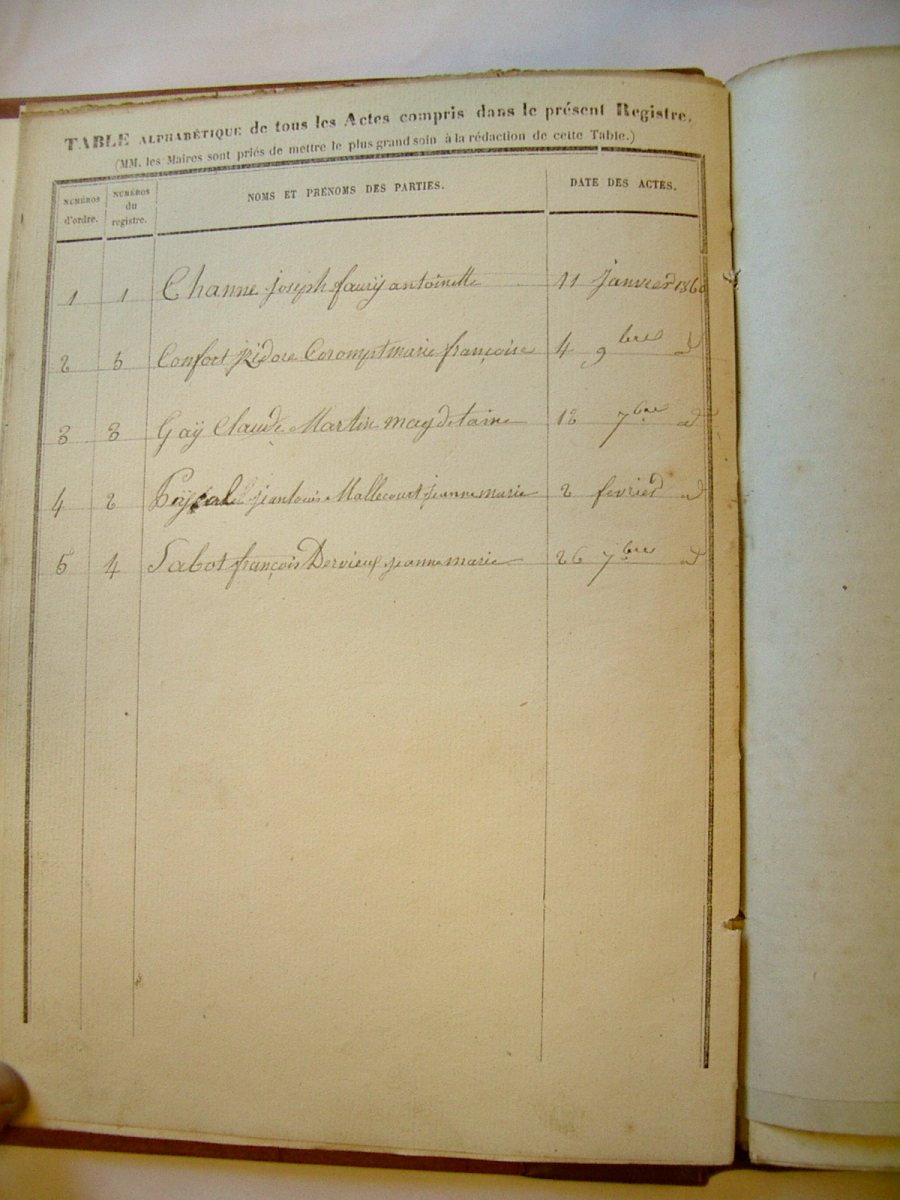 TABLE ALPHABÉTIQUE de tous les Actes compris dans le présent Registre.
(MM. les Maires sont priés de mettre le plus grand soin à la rédaction de cette Table.)
NUMÉROS d'ordre. NUMÉROS du registre. NOMS ET PRÉNOMS DES PARTIES. DATE DES ACTES.
1 1 Channe joseph faury antoinette 11 Janvier 1860
2 5 Confort Izidore Corompt marie françoise 4 9bre d
3 3 Gaÿ Claude Martin magdelaine 18 7bre d
4 2 jean louis Mallecourt jeanne marie 2 fevrier d
5 4 Sabot françois Dervieux jeanne marie 26 7bre d